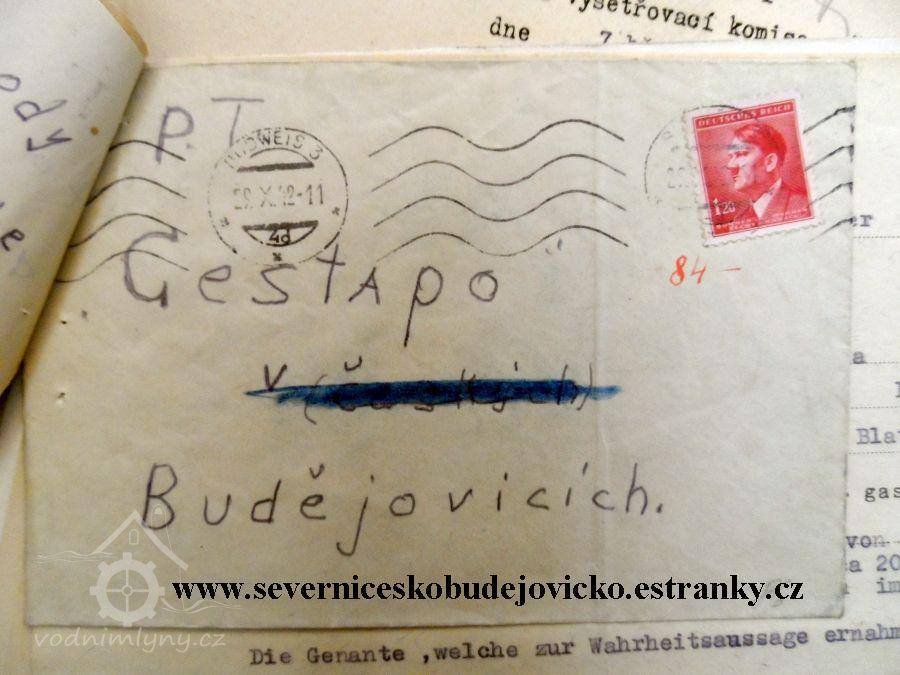 vyšetřovací komise
dne
ody
P.T
BUDWEIS 3
29.X.42-11
4d
DEUTSCHES REICH
1.20
84 —
er
„Gestapo"
v (českých)
a
Bla
Budějovicích.
gas
von
a 20
im
www.severniceskobudejovicko.estranky.cz
vodnimlyny.cz
Die Genante ,welche zur Wahrheitsaussage ernahm